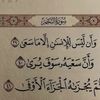 سورة النجم
وَأَن لَّيْسَ لِلْإِنسَٰنِ إِلَّا مَا سَعَىٰ ٣٩
وَأَنَّ سَعْيَهُۥ سَوْفَ يُرَىٰ ٤٠
ثُمَّ يُجْزَىٰهُ ٱلْجَزَآءَ ٱلْأَوْفَىٰ ٤١